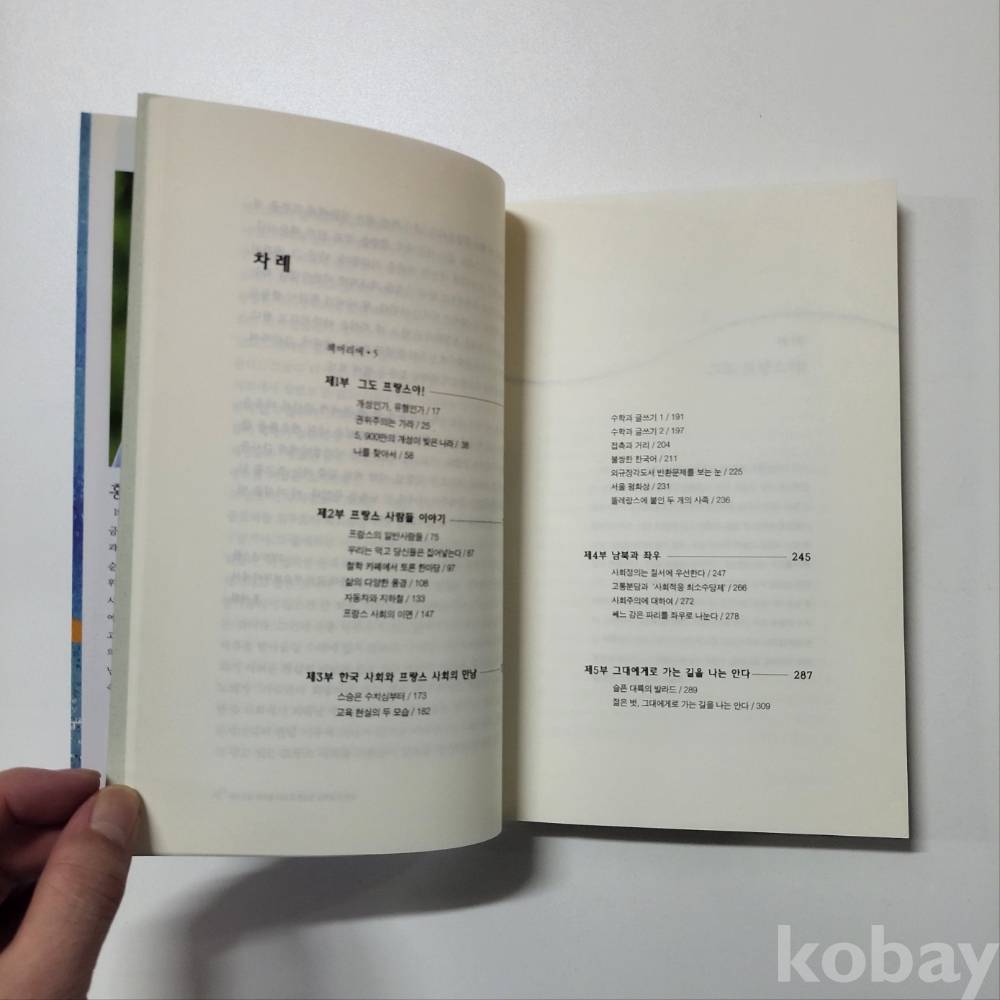 차례
책머리에 • 5
제1부 그도 프랑스야!
개성인가, 유형인가 / 17
권위주의는 가라 / 25
5, 900만의 개성이 빚은 나라 / 38
나를 찾아서 / 58
제2부 프랑스 사람들 이야기
프랑스의 일반사람들 / 75
우리는 먹고 당신들은 집어넣는다 / 87
철학 카페에서 토론 한마당 / 97
삶의 다양한 풍경 / 108
자동차와 지하철 / 133
프랑스 사회의 이면 / 147
제3부 한국 사회와 프랑스 사회의 만남
스승은 수치심부터 / 173
교육 현실의 두 모습 / 182
수학과 글쓰기 1 / 191
수학과 글쓰기 2 / 197
접촉과 거리 / 204
불쌍한 한국어 / 211
외규장각도서 반환문제를 보는 눈 / 225
서울 평화상 / 231
똘레랑스에 붙인 두 개의 사족 / 236
제4부 남북과 좌우 245
사회정의는 질서에 우선한다 / 247
고통분담과 '사회적응 최소수당제' / 266
사회주의에 대하여 / 272
쎄느 강은 파리를 좌우로 나눈다 / 278
제5부 그대에게로 가는 길을 나는 안다 287
슬픈 대륙의 발라드 / 289
젊은 벗, 그대에게로 가는 길을 나는 안다 / 309
kobay